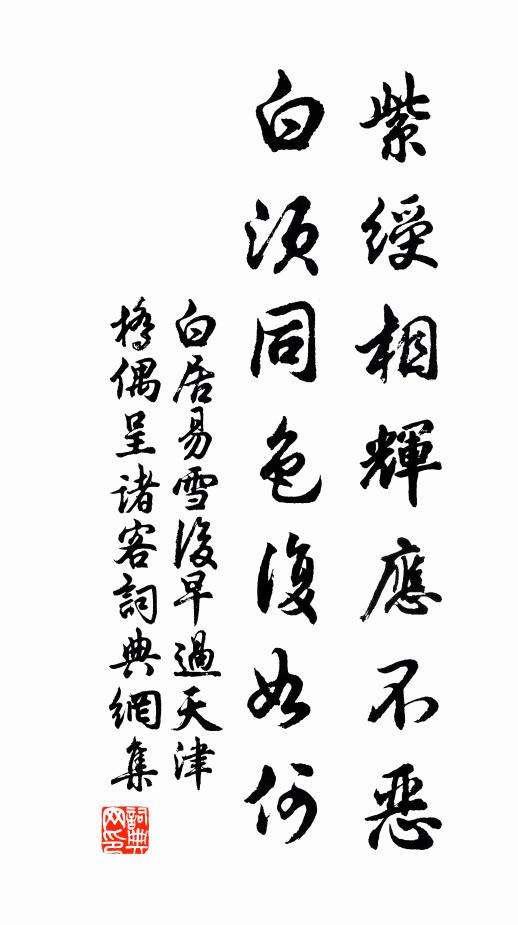 紫綬相輝應不惡
白須同色復如何
白居易雪後早過天津
橋偶呈諸客詞典網集
詞典
網印